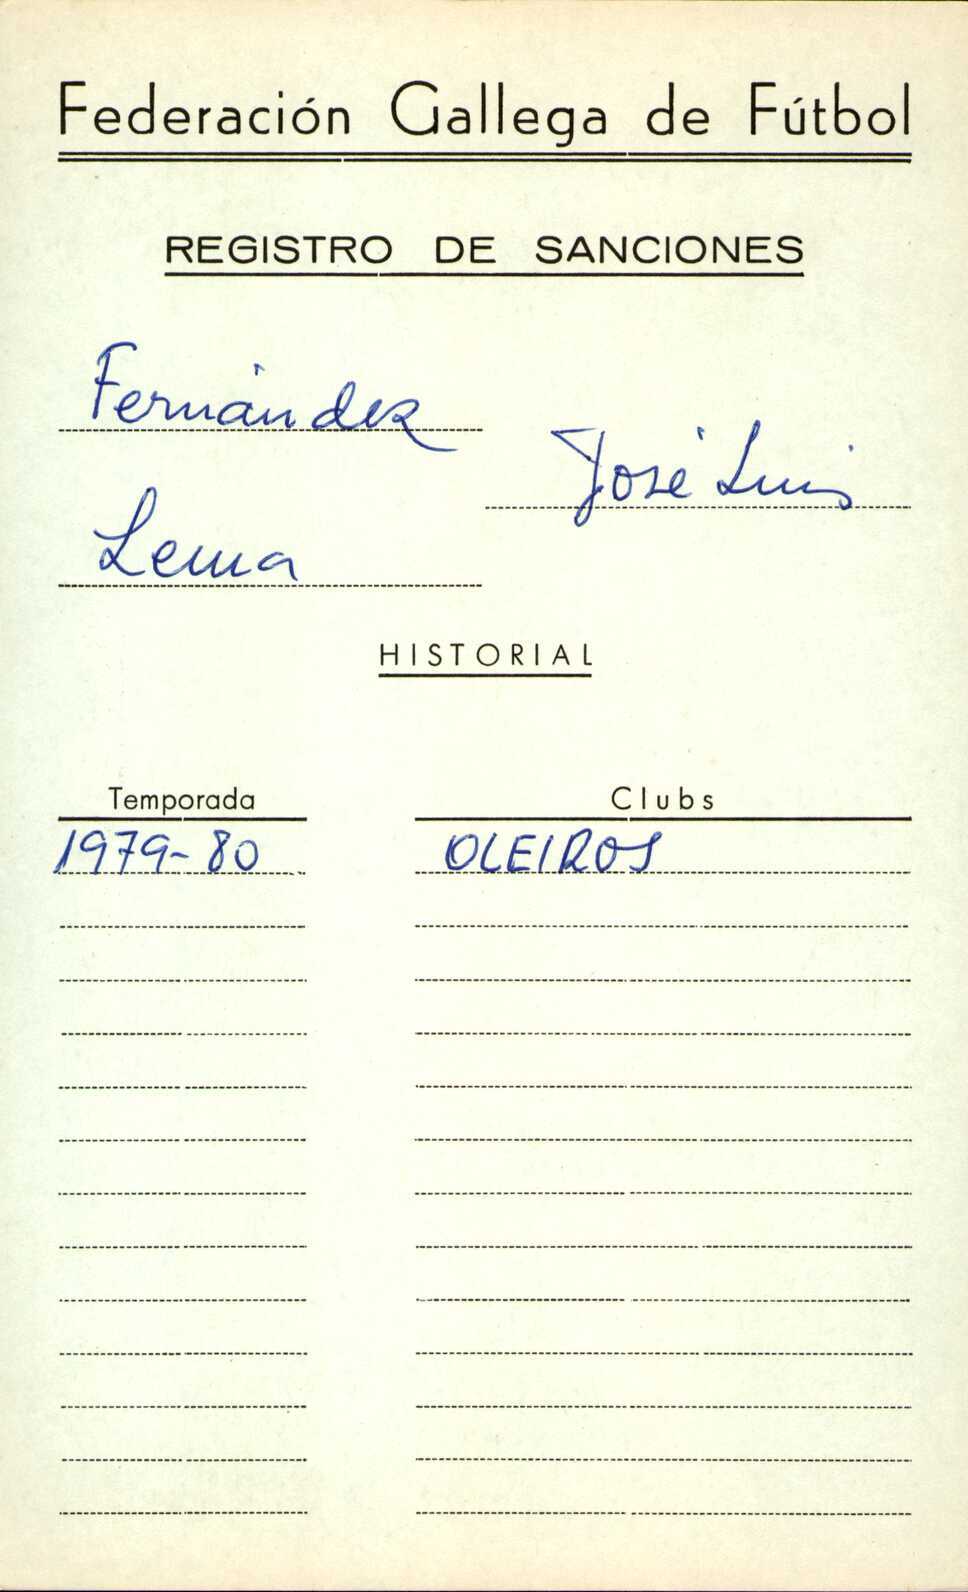 Federación Gallega de Fútbol
REGISTRO DE SANCIONES
Fernández
José Luis
Lema
HISTORIAL
Temporada Clubs
1979-80 OLEIROS